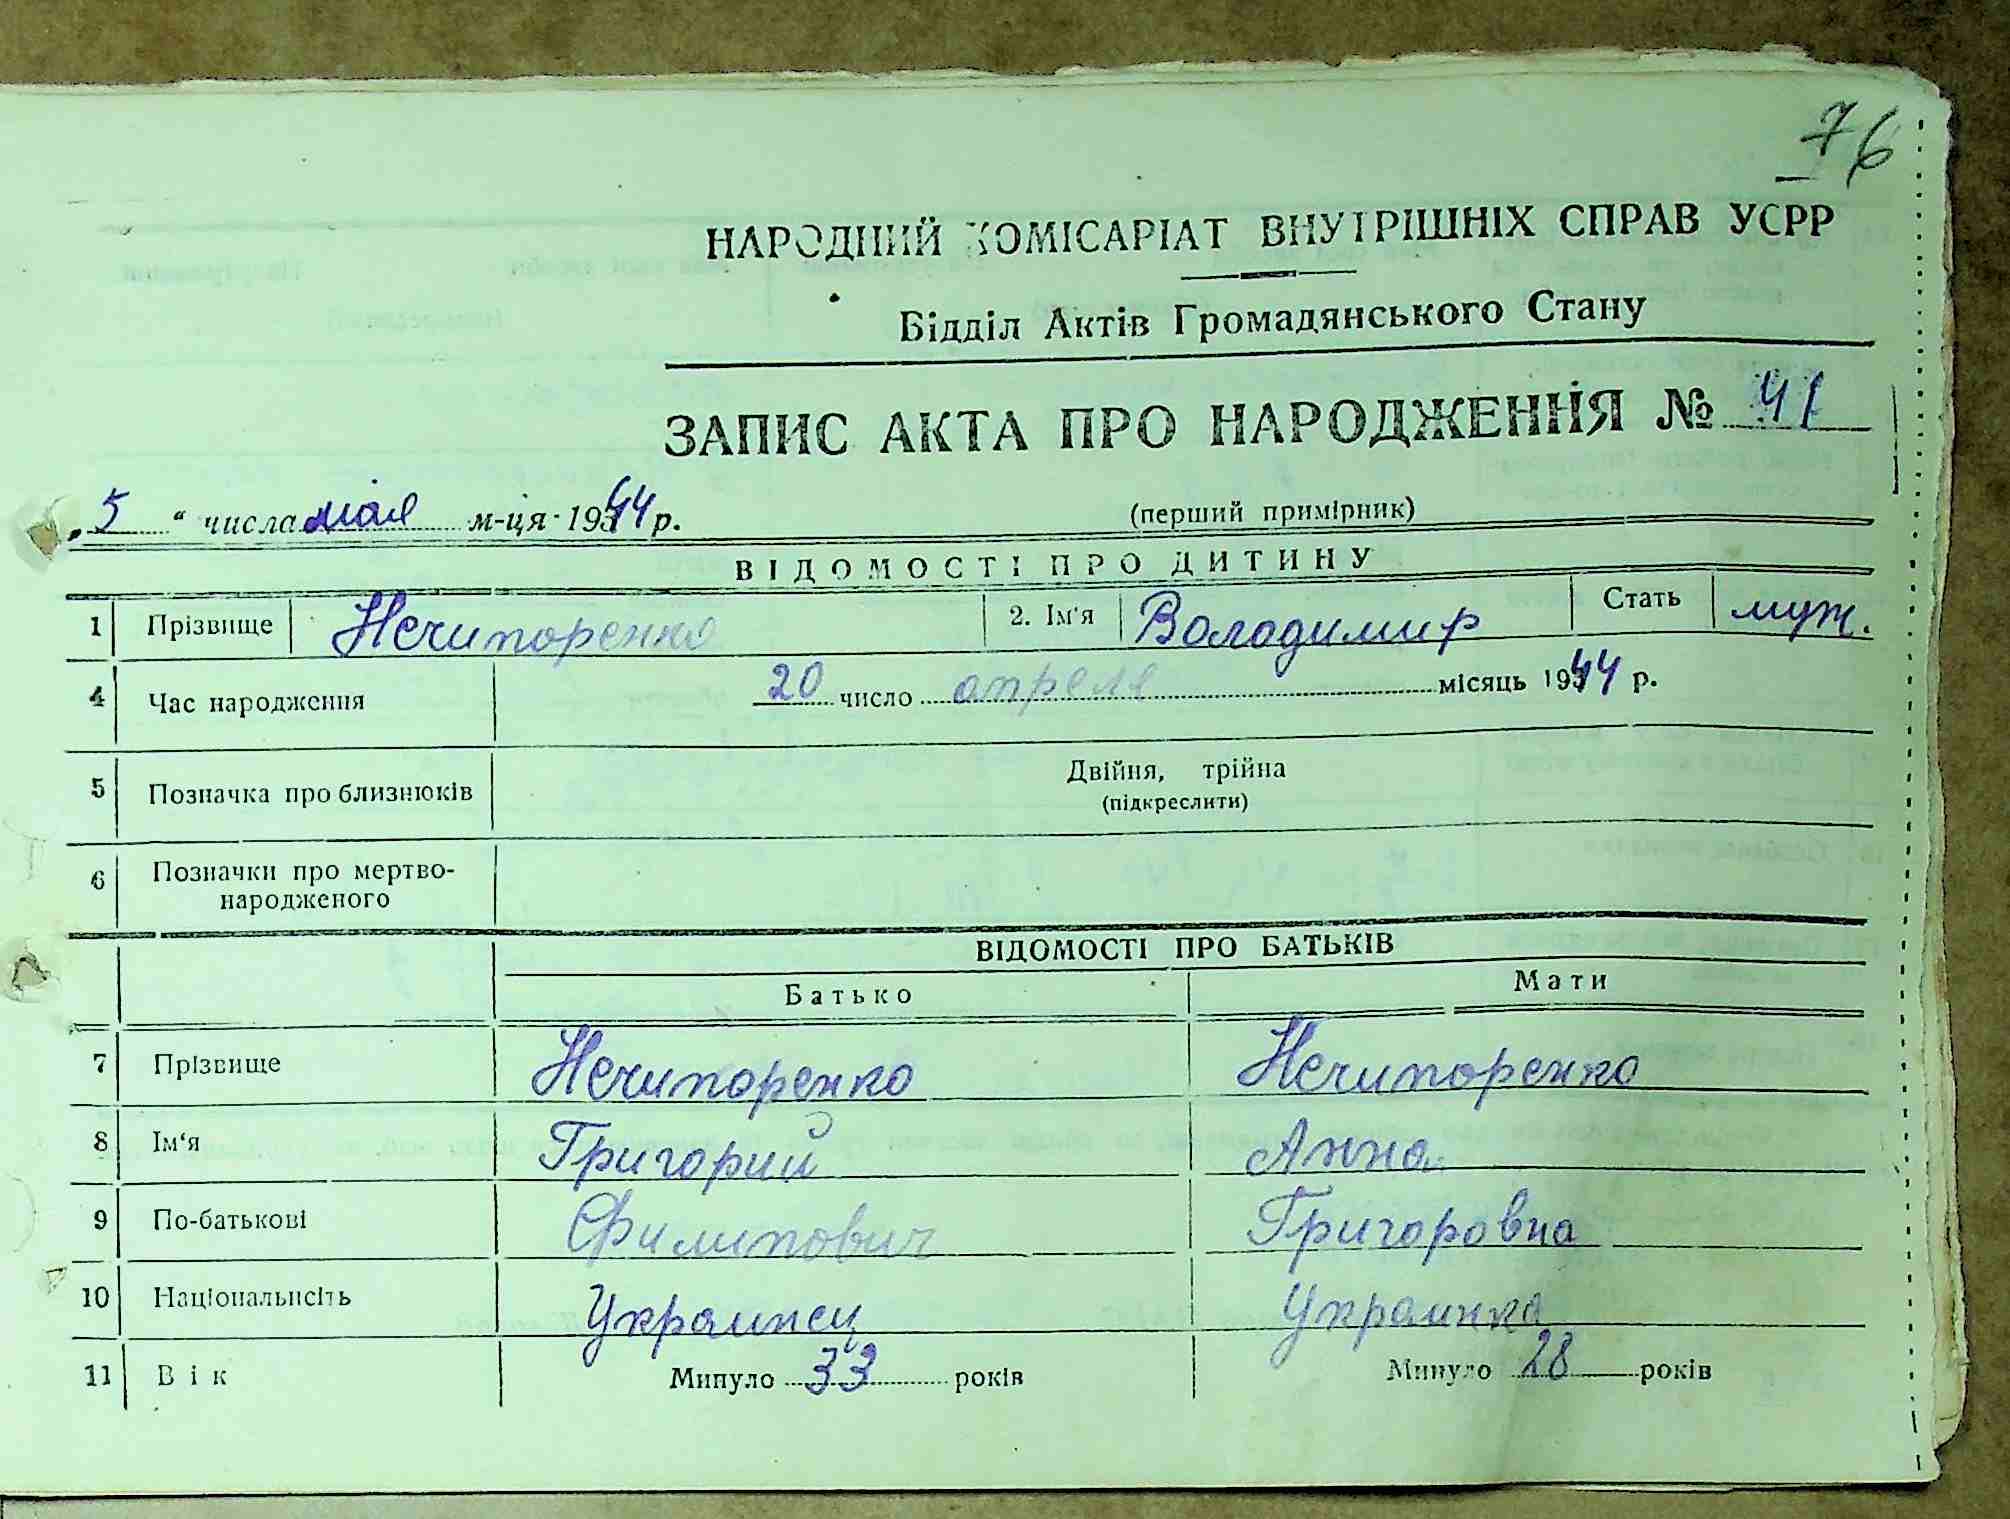 76
НАРОДНИЙ КОМІСАРІАТ ВНУТРІШНІХ СПРАВ УСРР
Відділ Актів Громадянського Стану
ЗАПИС АКТА ПРО НАРОДЖЕННЯ № 41
„5“ числа мая м-ця 1944 р.
(перший примірник)
ВІДОМОСТІ ПРО ДИТИНУ
1 Прізвище Нечипоренко 2. Ім'я Володимир Стать муж.
4 Час народження 20 число апреля місяць 1944 р.
5 Позначка про близнюків Двійня, трійна
(підкреслити)
6 Позначки про мертво-
народженого
ВІДОМОСТІ ПРО БАТЬКІВ
Батько Мати
7 Прізвище Нечипоренко Нечипоренко
8 Ім'я Григорий Анна
9 По-батькові Филипович Григоровна
10 Національність Украинец Украинка
11 Вік Минуло 33 років Минуло 28 років